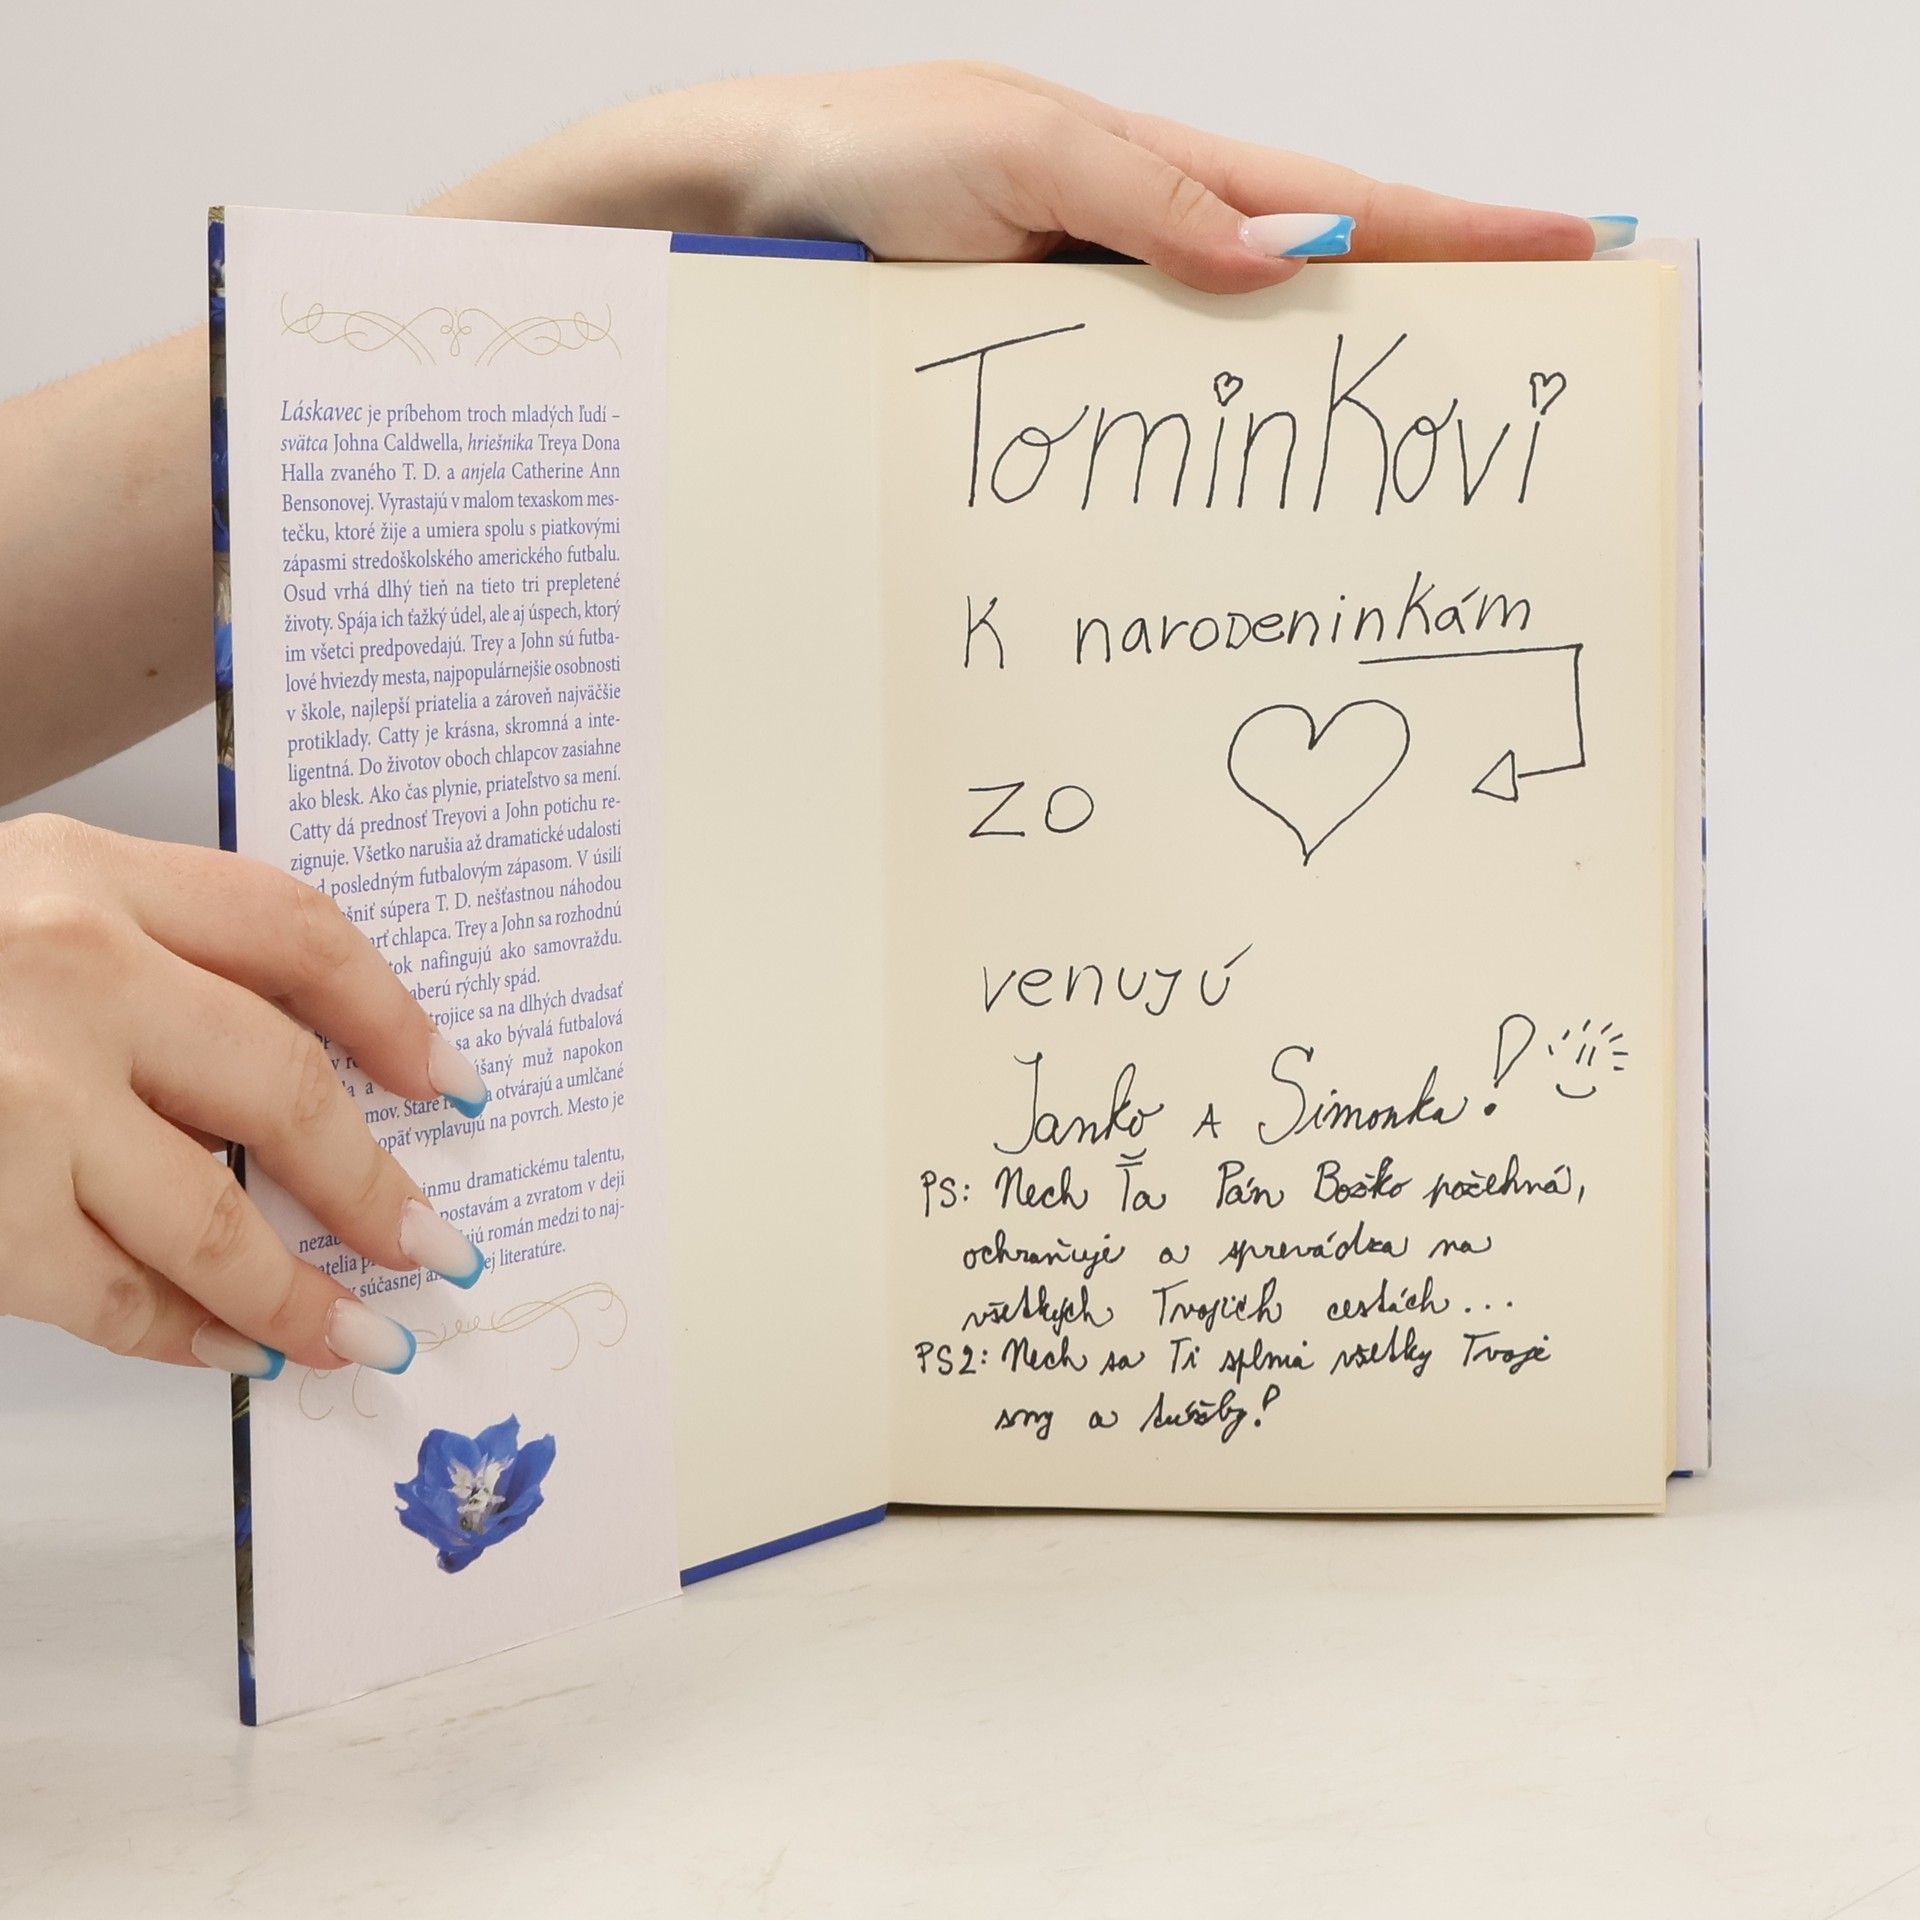 Láskavec je príbehom troch mladých ľudí –
svätca Johna Caldwella, hriešnika Treya Dona
Halla zvaného T. D. a anjela Catherine Ann
Bensonovej. Vyrastajú v malom texaskom mes-
tečku, ktoré žije a umiera spolu s piatkovými
zápasmi stredoškolského amerického futbalu.
Osud vrhá dlhý tieň na tieto tri prepletené
životy. Spája ich ťažký údel, ale aj úspech, ktorý
im všetci predpovedajú. Trey a John sú futba-
lové hviezdy mesta, najpopulárnejšie osobnosti
v škole, najlepší priatelia a zároveň najväčšie
protiklady. Catty je krásna, skromná a inte-
ligentná. Do životov oboch chlapcov zasiahne
ako blesk. Ako čas plynie, priateľstvo sa mení.
Catty dá prednosť Treyovi a John potichu re-
zignuje. Všetko narušia až dramatické udalosti
posledným futbalovým zápasom. V úsilí
súpera T. D. nešťastnou náhodou
chlapca. Trey a John sa rozhodnú
nafingujú ako samovraždu.
rýchly spád.
trojice sa na dlhých dvadsať
sa ako bývalá futbalová
muž napokon
otvárajú a umlčané
opäť vyplavujú na povrch. Mesto je
dramatickému talentu,
postavám a zvratom v deji
román medzi to naj-
v súčasnej literatúre.
Tominkovi
K narodeninkám
zo
venujú
Janko a Simonka!
PS: Nech Ťa Pán Božko požehná,
ochraňuje a sprevádza na
všetkých Tvojich cestách...
PS2: Nech sa Ti splnia všetky Tvoje
sny a túžby!